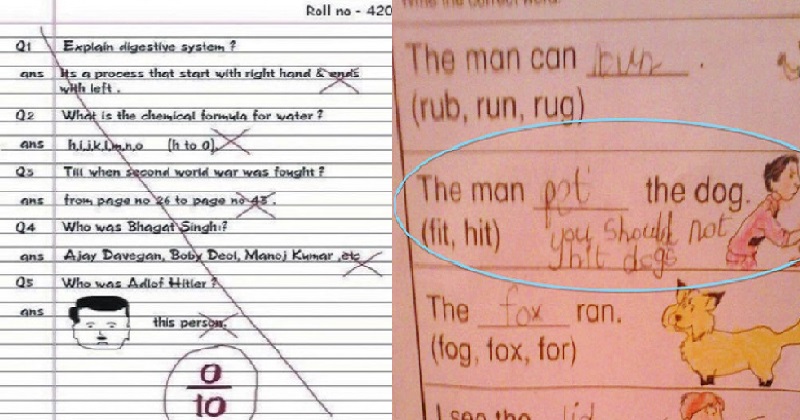 Roll no - 420
Q1 Explain digestive system ?
ans Its a process that start with right hand & ends
with left .
Q2 What is the chemical formula for water ?
ans h,i,j,k,l,m,n,o (h to o).
Q3 Till when second world war was fought ?
ans from page no 26 to page no 43 .
Q4 Who was Bhagat Singh ?
ans Ajay Davegan, Boby Deol, Manoj Kumar ,etc
Q5 Who was Adlof Hitler ?
ans this person.
0
10
The man can run .
(rub, run, rug)
The man pet the dog.
(fit, hit) you should not
hit dogs
The fox ran.
(fog, fox, for)
I see the lid